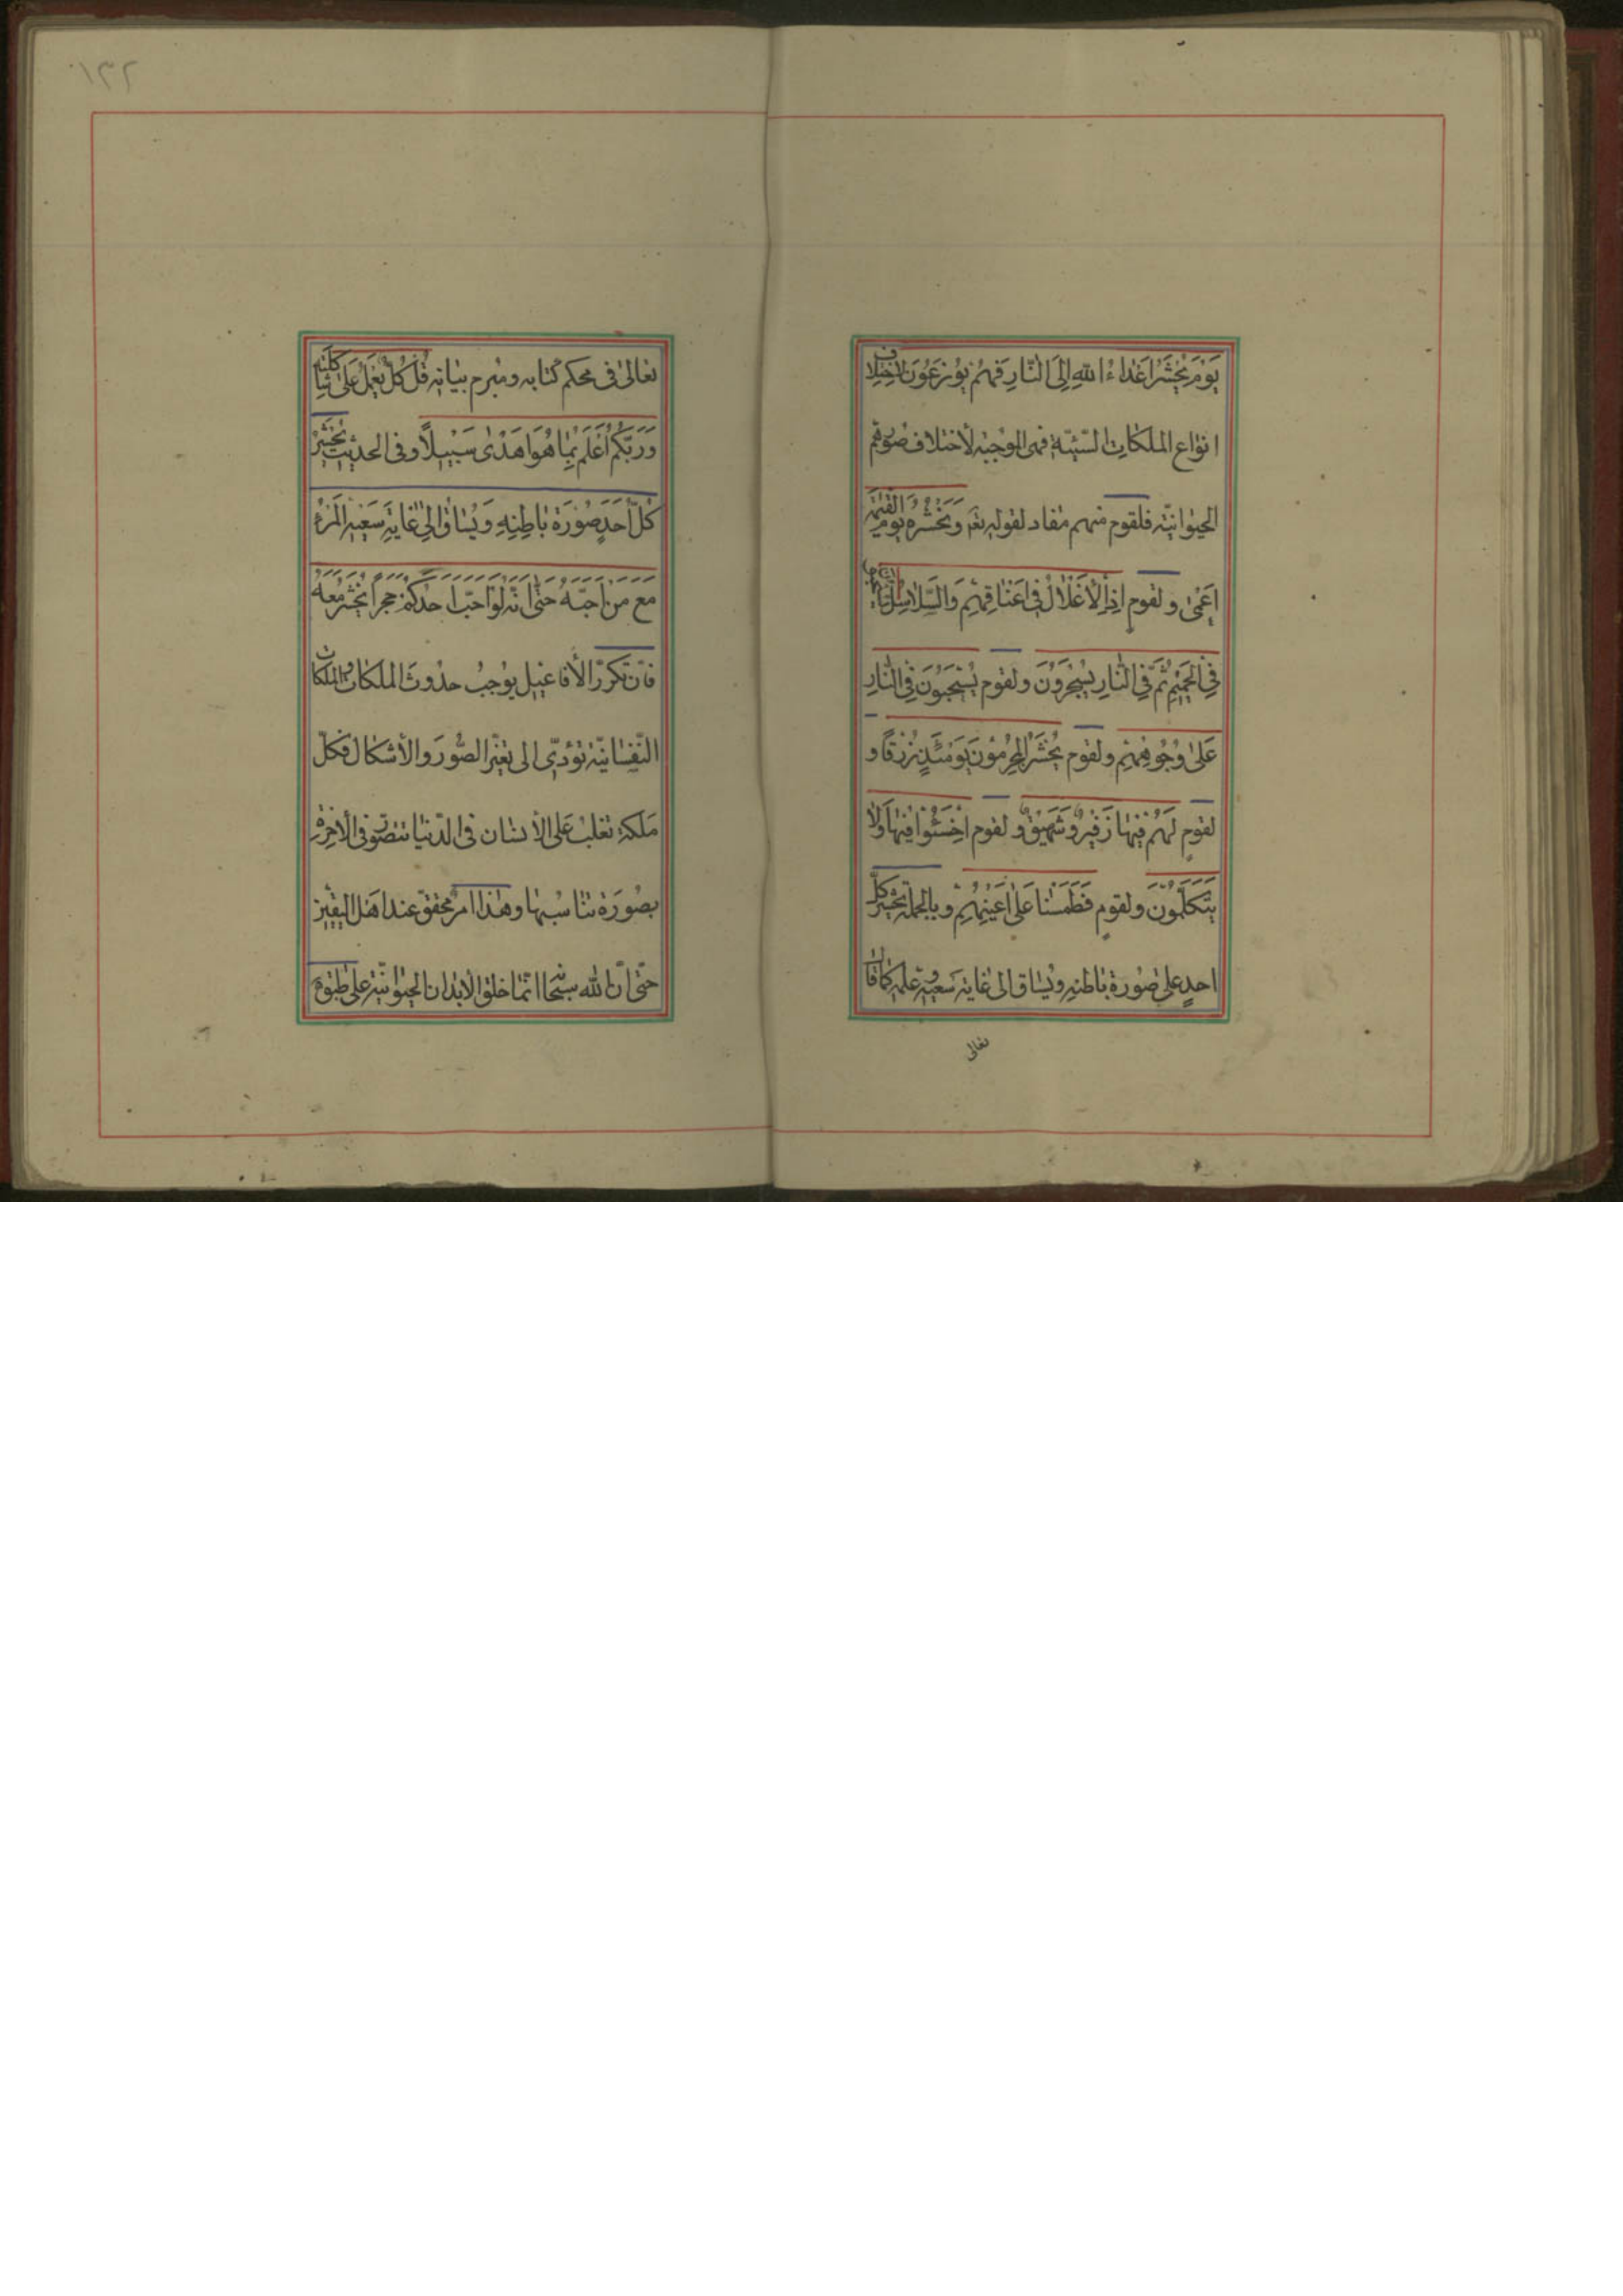 يَوْمَ يُحْشَرُ اَعْدَاءُ اللّٰهِ اِلَى النَّارِ فَهُمْ يُوزَعُونَ لاختلاف
انواع الملكات السّيّئة فهى الموجبة لأختلاف صورهم
الحيوانيّة فلقوم منهم مفاد لقوله تعالى وَنَحْشُرُهُ يَوْمَ الْقِيٰمَةِ
اَعْمٰى و لقوم اِذِ الْأَغْلَالُ فِى اَعْنَاقِهِمْ وَالسَّلَاسِلُ يُسْحَبُونَ
فِى الْحَمِيمِ ثُمَّ فِى النَّارِ يُسْجَرُونَ و لقوم يُسْحَبُونَ فِى النَّارِ
عَلىٰ وُجُوهِهِمْ و لقوم يُحْشَرُ الْمُجْرِمُونَ يَوْمَئِذٍ زُرْقًا و
لقومٍ لَهُمْ فِيهَا زَفِيرٌ وَشَهِيقٌ و لقوم اخْسَئُوا فِيهَا وَلَا
يَتَكَلَّمُونَ و لقومٍ فَطَمَسْنَا عَلىٰ اَعْيُنِهِمْ و بالجملة يحشر كلّ
احدٍ على صُورة باطنهِ ويُساق الى غاية سعيه و علمه كما قال
تعالى
١٣٢
تعالىٰ فى محكم كتابه ومبرم بيانه قُلْ كُلٌّ يَعْمَلُ عَلىٰ شَاكِلَتِهِ
وَرَبُّكُمْ أَعْلَمُ بِمَا هُوَ اَهْدىٰ سَبِيلًا وفى الحديث يُحْشَرُ
كُلُّ أَحَدٍ صُورَةَ بَاطِنِهِ وَ يُسَاقُ اِلىٰ غَايَةِ سَعْيِهِ الْمَرْءُ
مَعَ مَنْ اَحَبَّهُ حَتّٰى اَنَّهُ لَوْ اَحَبَّ اَحَدُكُمْ حَجَرًا يُحْشَرُ مَعَهُ
فانّ تكرّر الأفاعيل يوجبُ حدوثَ الملكات والملكات
النّفسانيّة تؤدّى الى تغيّر الصُّوَر والأشكال فكلّ
مَلَكةٍ تغلبُ عَلى الأنسان فى الدّنيا تتصوّر فى الأخرة
بصُورَة تناسبُها وهٰذا امرٌ محقق عند اهل اليقين
حتّى انّ الله سبحانه انّما خلق الأبدان الحيوانيّة على طبق